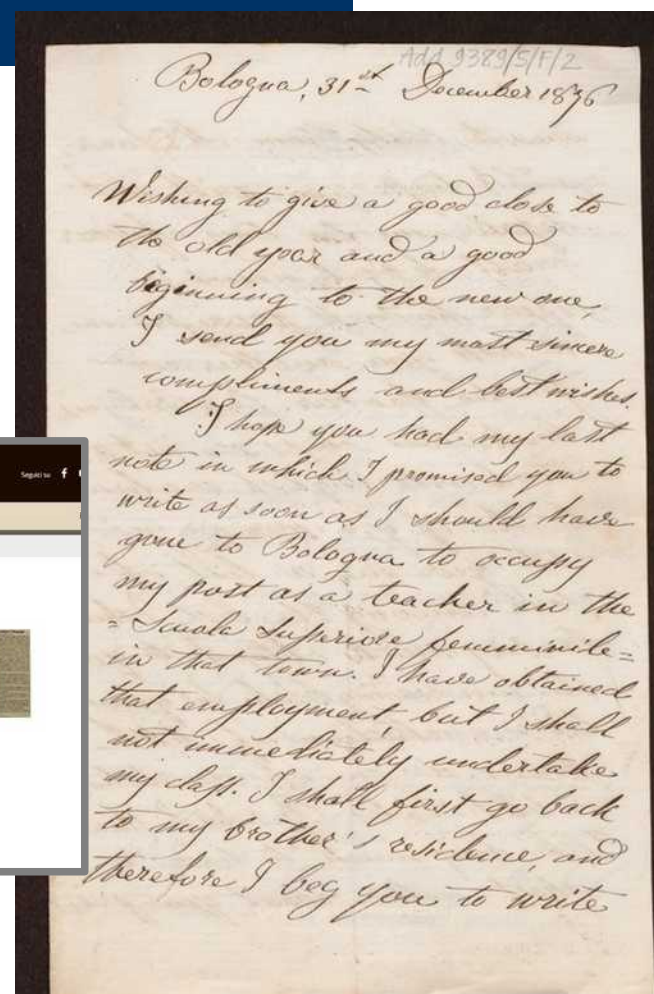 Add 9389/5/F/2
Bologna, 31st December 1876
Wishing to give a good close to
the old year and a good
biginning to the new one,
I send you my most sincere
compliments and best wishes.
I hope you had my last
note in which I promised you to
write as soon as I should have
gone to Bologna to occupy
my post as a teacher in the
=Scuola Superiore femminile=
in that town. I have obtained
that employment, but I shall
not immediately undertake
my class. I shall first go back
to my brother's residence, and
therefore I beg you to write
Seguici su f